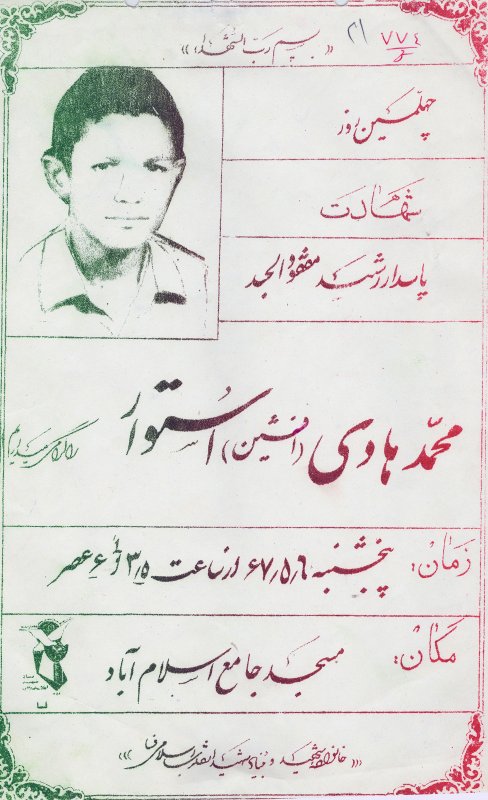 ۷۷۴ ۲۱
«بسم رب الشهداء»
چهلمین روز
شهادت
پاسدار رشید مفقودالجسد
محمد هادی (افشین) استوار
را گرامی میداریم
زمان: پنجشنبه ۶۷/۵/۶ از ساعت ۳/۵ الی ۶ عصر
مکان: مسجد جامع اسلام آباد
«خانواده شهید و بنیاد شهید انقلاب اسلامی»